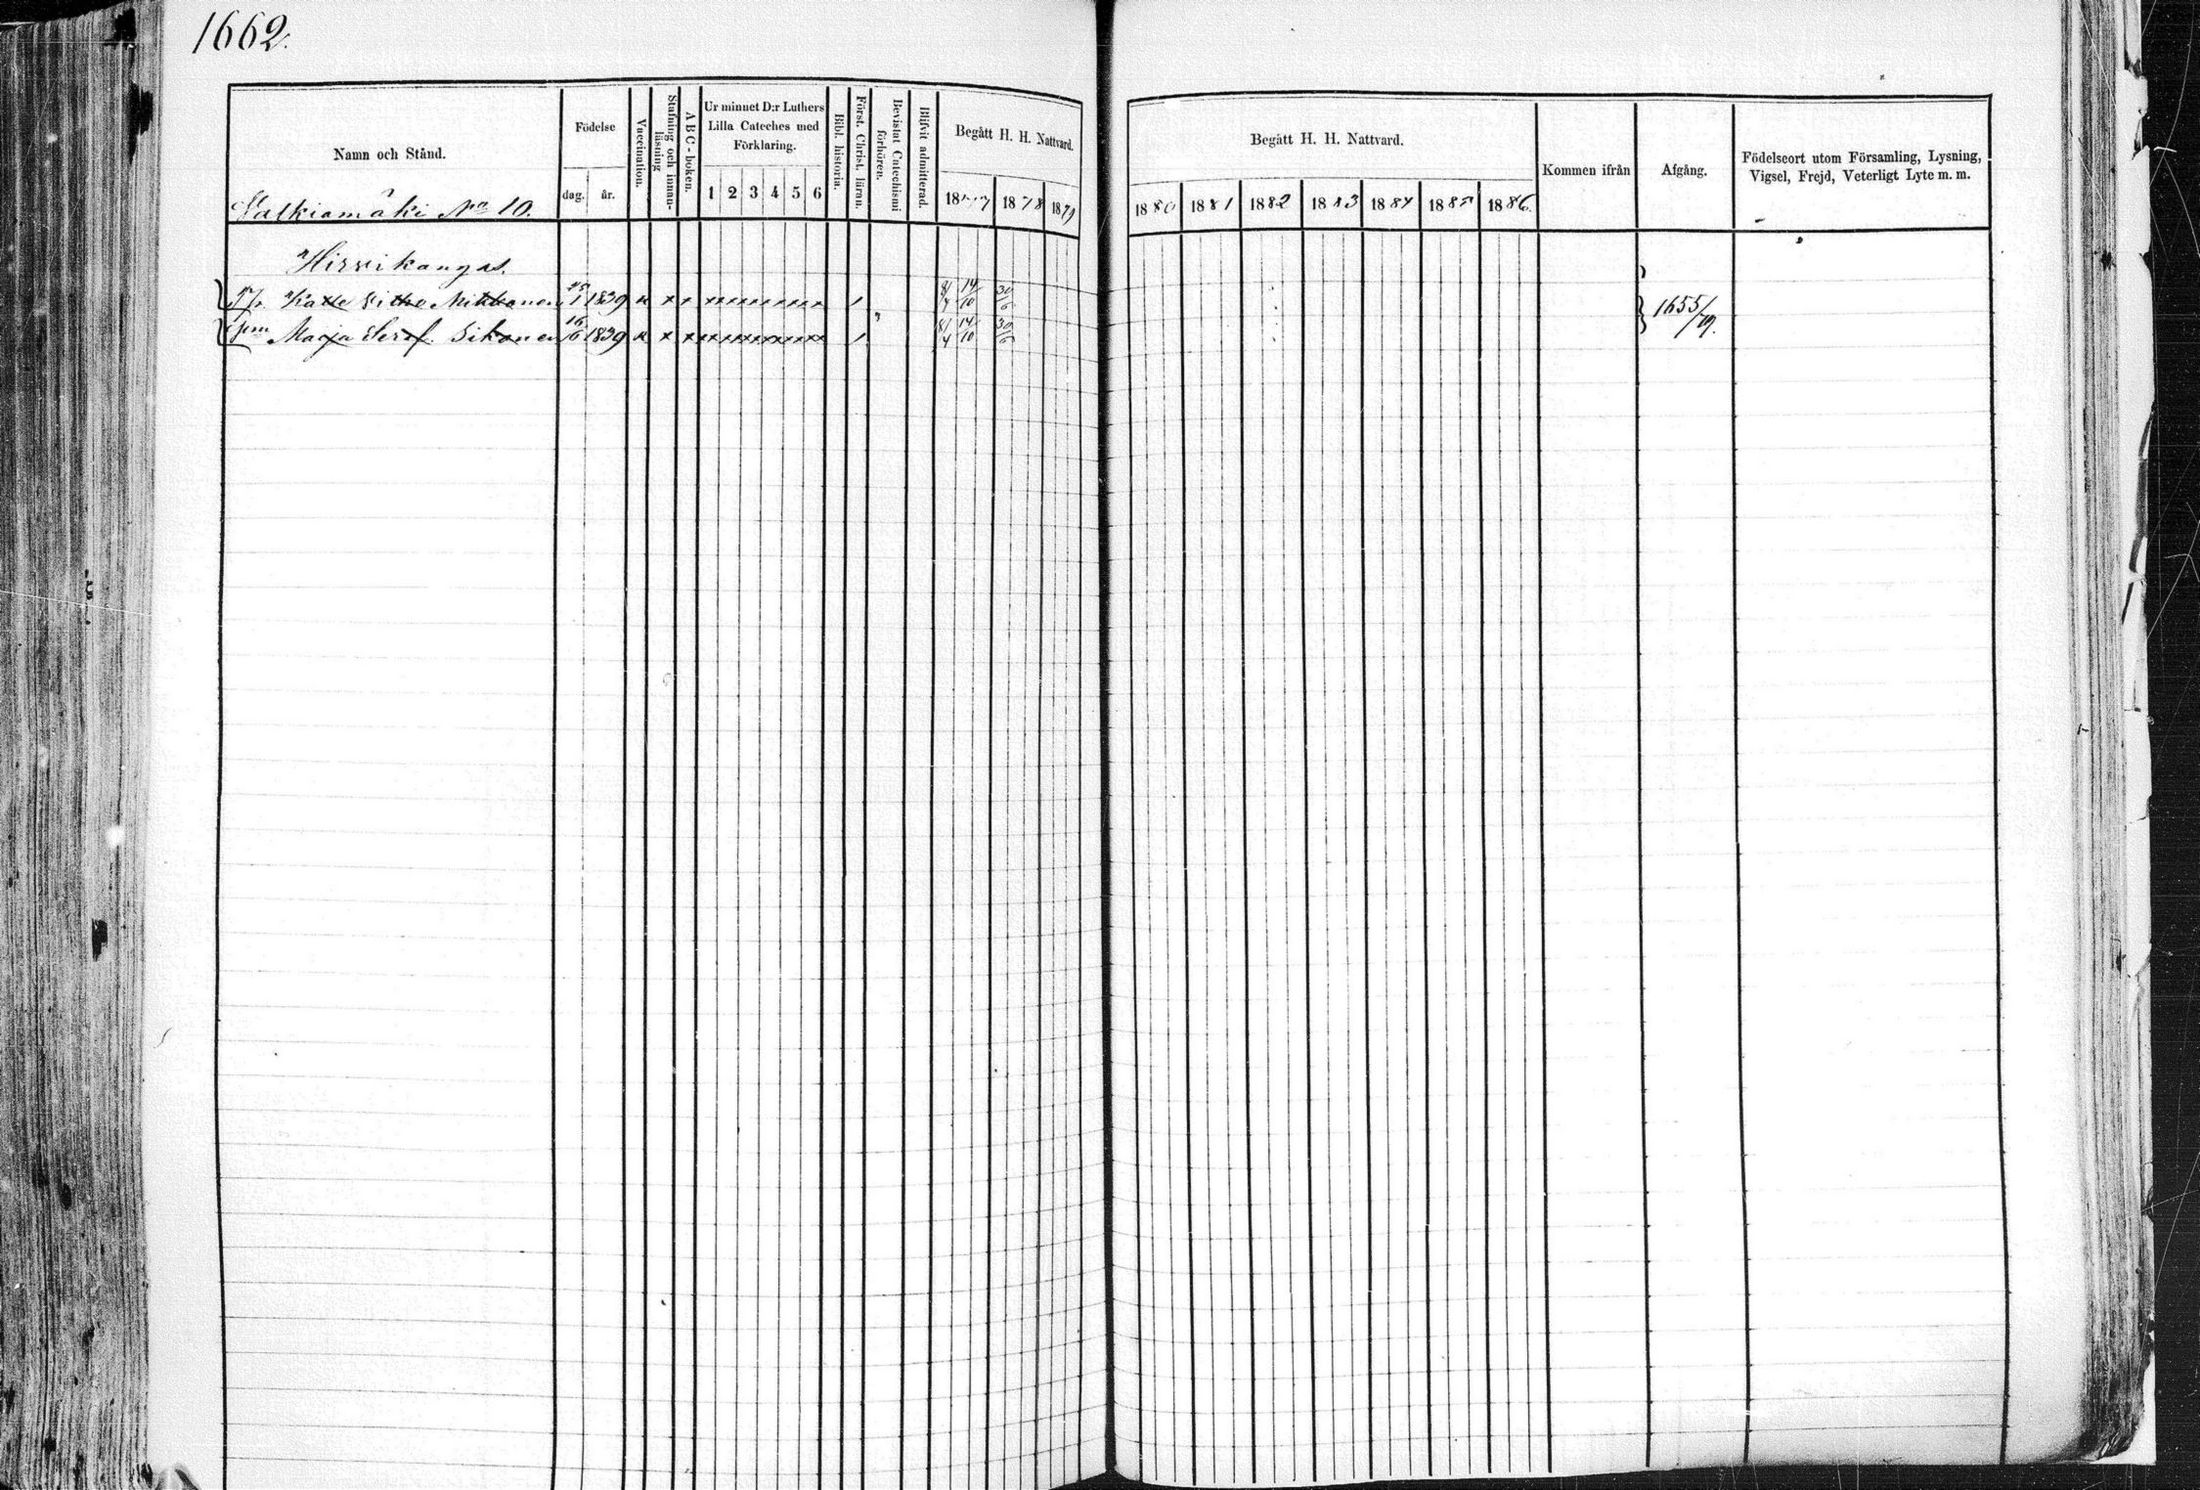 1662.
Namn och Stånd.
Födelse
dag.
år.
Vaccination.
Stafning och innan-
läsning
ABC-boken.
Ur minnet D:r Luthers
Lilla Cateches med
Förklaring.
1 2 3 4 5 6
Bibl. historia.
Först. Christ. läran.
Bevistat Catechismi
förhören.
Blifvit admitterad.
Begått H. H. Nattvard.
1877 1878 1879
Begått H. H. Nattvard.
1880 1881 1882 1883 1884 1885 1886.
Kommen ifrån
Afgång.
Födelseort utom Församling, Lysning,
Vigsel, Frejd, Veterligt Lyte m. m.
Valkiamäki No 10.
Hirvikangas.
Kalle Nikkanen 1 1839 x x x x x x x x x x x 8/4 14/10 30/6
Maija Seraf. Sikanen 16/6 1839 x x x x x x x x x x x 8/4 14/10 30/6
1655/79.